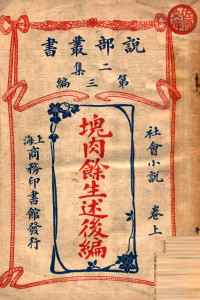 說部叢書
二集
第三編
社會小說 卷上
塊肉餘生述後編
上海商務印書館發行